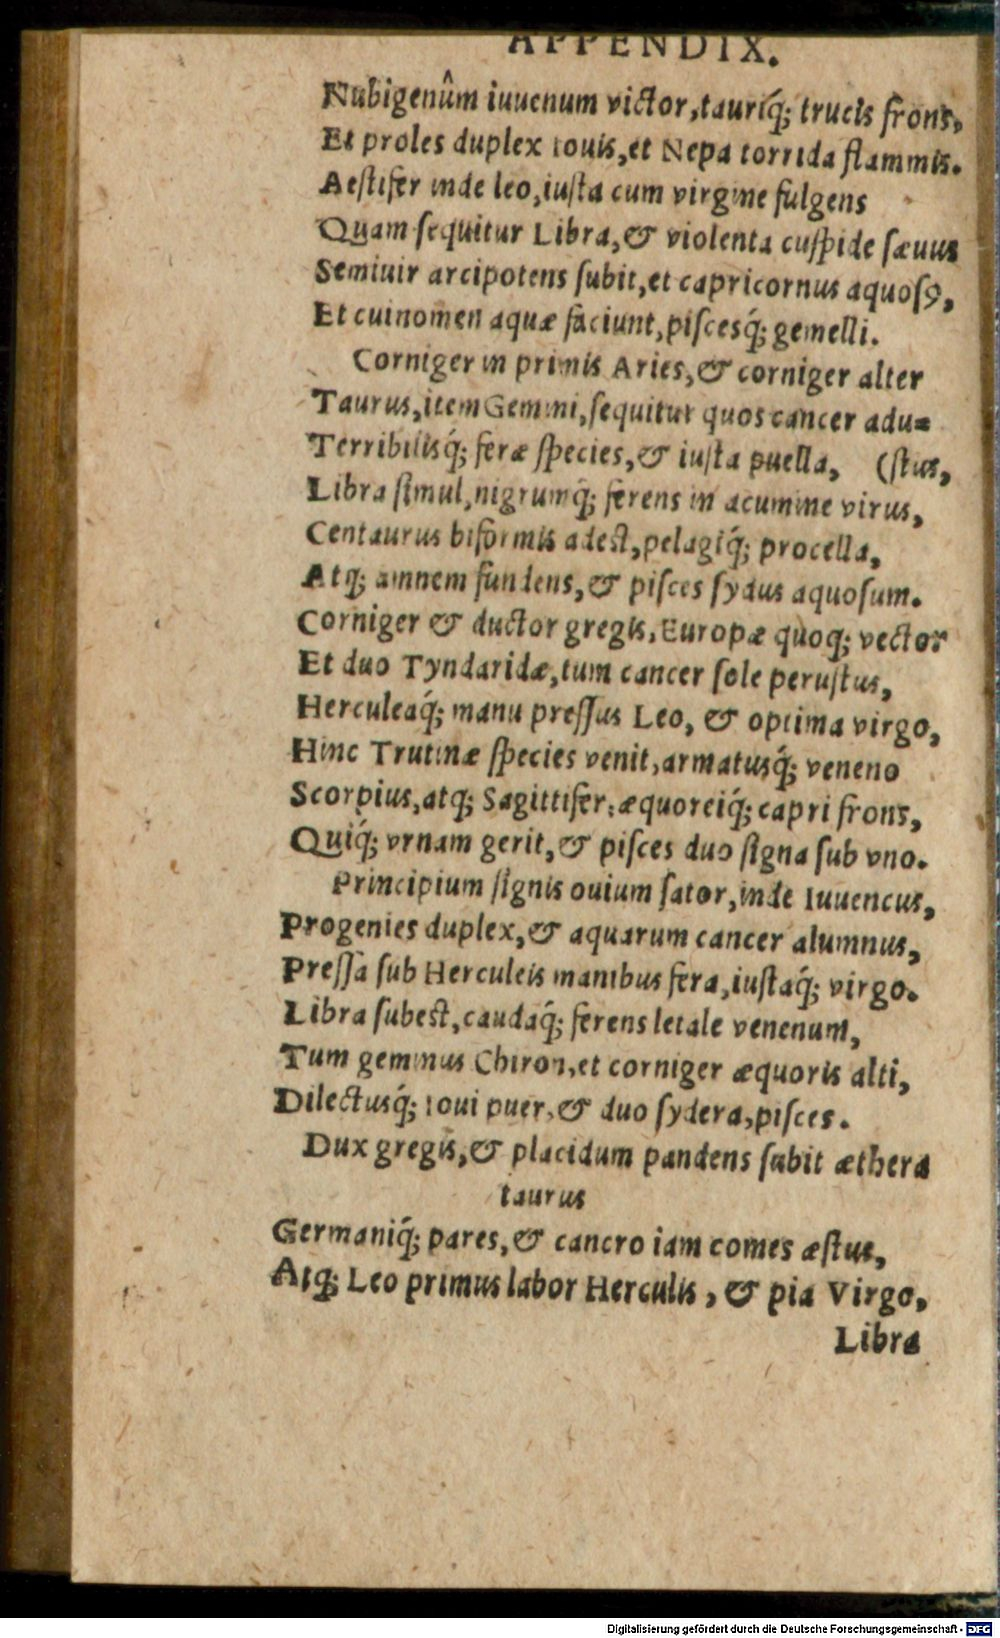 APPENDIX.
Nubigenûm iuuenum victor, tauriq́; trucis frons,
Et proles duplex Iouis, et Nepa torrida flammis.
Aestifer inde leo, iusta cum virgine fulgens
Quam sequitur Libra, & violenta cuspide sæuus
Semiuir arcipotens subit, et capricornus aquosꝰ,
Et cui nomen aquæ faciunt, piscesq́; gemelli.
Corniger in primis Aries, & corniger alter
Taurus, item Gemini, sequitur quos cancer adu=
Terribilisq́; feræ species, & iusta puella, (stus,
Libra simul, nigrumq́; ferens in acumine virus,
Centaurus biformis adest, pelagiq́; procella,
Atq; amnem fundens, & pisces sydus aquosum.
Corniger & ductor gregis, Europæ quoq; vector
Et duo Tyndaridæ, tum cancer sole perustus,
Herculeaq́; manu pressus Leo, & optima virgo,
Hinc Trutinæ species venit, armatusq́; veneno
Scorpius, atq; Sagittifer, æquoreiq́; capri frons,
Quiq́; vrnam gerit, & pisces duo signa sub vno.
Principium signis ouium sator, inde Iuuencus,
Progenies duplex, & aquarum cancer alumnus,
Pressa sub Herculeis manibus fera, iustaq́; virgo.
Libra subest, caudaq́; ferens letale venenum,
Tum geminus Chiron, et corniger æquoris alti,
Dilectusq́; Ioui puer, & duo sydera, pisces.
Dux gregis, & placidum pandens subit æthera
taurus
Germaniq́; pares, & cancro iam comes æstus,
Atq; Leo primus labor Herculis, & pia Virgo,
Libra
Digitalisierung gefördert durch die Deutsche Forschungsgemeinschaft - DFG